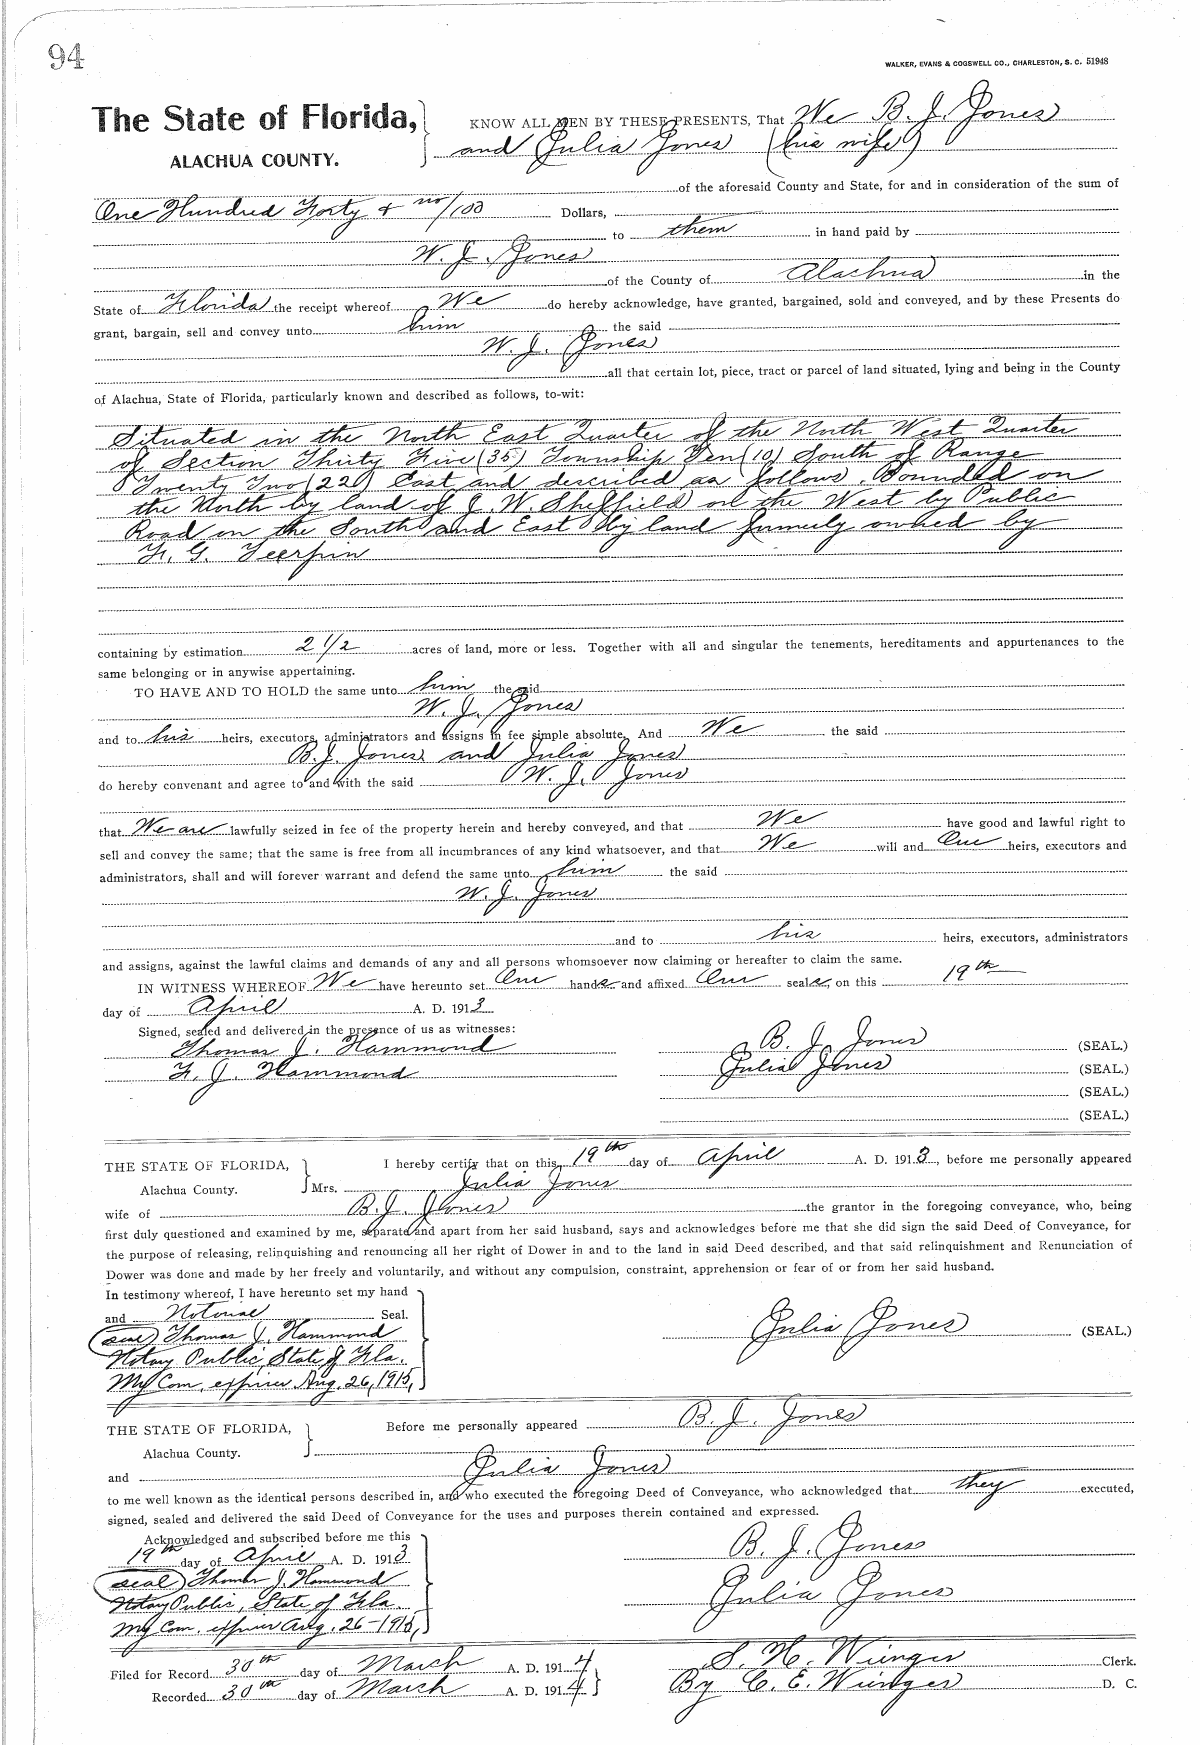 94
WALKER, EVANS & COGSWELL CO., CHARLESTON, S. C. 51948
The State of Florida,
ALACHUA COUNTY.
KNOW ALL MEN BY THESE PRESENTS, That We B. J. Jones
and Julia Jones (his wife)
of the aforesaid County and State, for and in consideration of the sum of
One Hundred Forty & no/100 Dollars,
to them in hand paid by
W. J. Jones
of the County of Alachua in the
State of Florida the receipt whereof We do hereby acknowledge, have granted, bargained, sold and conveyed, and by these Presents do
grant, bargain, sell and convey unto him the said
W. J. Jones
all that certain lot, piece, tract or parcel of land situated, lying and being in the County
of Alachua, State of Florida, particularly known and described as follows, to-wit:
Situated in the North East Quarter of the North West Quarter
of Section Thirty Five (35) Township Ten (10) South of Range
Twenty Two (22) East and described as follows. Bounded on
the North by land of J. W. Sheffield on the West by Public
Road on the South and East by land formerly owned by
F. G.
containing by estimation 2 1/2 acres of land, more or less. Together with all and singular the tenements, hereditaments and appurtenances to the
same belonging or in anywise appertaining.
TO HAVE AND TO HOLD the same unto him the said
W. J. Jones
and to his heirs, executors, administrators and assigns in fee simple absolute. And We the said
B. J. Jones and Julia Jones
do hereby convenant and agree to and with the said W. J. Jones
that We are lawfully seized in fee of the property herein and hereby conveyed, and that We have good and lawful right to
sell and convey the same; that the same is free from all incumbrances of any kind whatsoever, and that We will and Our heirs, executors and
administrators, shall and will forever warrant and defend the same unto him the said
W. J. Jones
and to his heirs, executors, administrators
and assigns, against the lawful claims and demands of any and all persons whomsoever now claiming or hereafter to claim the same.
IN WITNESS WHEREOF We have hereunto set Our hands and affixed Our seals, on this 19th
day of April A. D. 1913
Signed, sealed and delivered in the presence of us as witnesses:
Thomas J. Hammond
F. J. Hammond
B. J. Jones (SEAL.)
Julia Jones (SEAL.)
(SEAL.)
(SEAL.)
THE STATE OF FLORIDA,
Alachua County.
I hereby certify that on this 19th day of April A. D. 1913, before me personally appeared
Mrs. Julia Jones
wife of B. J. Jones the grantor in the foregoing conveyance, who, being
first duly questioned and examined by me, separate and apart from her said husband, says and acknowledges before me that she did sign the said Deed of Conveyance, for
the purpose of releasing, relinquishing and renouncing all her right of Dower in and to the land in said Deed described, and that said relinquishment and Renunciation of
Dower was done and made by her freely and voluntarily, and without any compulsion, constraint, apprehension or fear of or from her said husband.
In testimony whereof, I have hereunto set my hand
and Notorial Seal.
(seal) Thomas J. Hammond
Notary Public, State of Fla.
My Com. expires Aug. 26, 1915,
Julia Jones (SEAL.)
THE STATE OF FLORIDA,
Alachua County.
Before me personally appeared B. J. Jones
and Julia Jones
to me well known as the identical persons described in, and who executed the foregoing Deed of Conveyance, who acknowledged that they executed,
signed, sealed and delivered the said Deed of Conveyance for the uses and purposes therein contained and expressed.
Acknowledged and subscribed before me this
19th day of April A. D. 1913
(seal) Thomas J. Hammond
Notary Public, State of Fla.
My Com. expires Aug. 26-1915,
B. J. Jones
Julia Jones
Filed for Record 30th day of March A. D. 1914
Recorded 30th day of March A. D. 1914
S. H. Wienges Clerk.
By C. E. Wienges D. C.